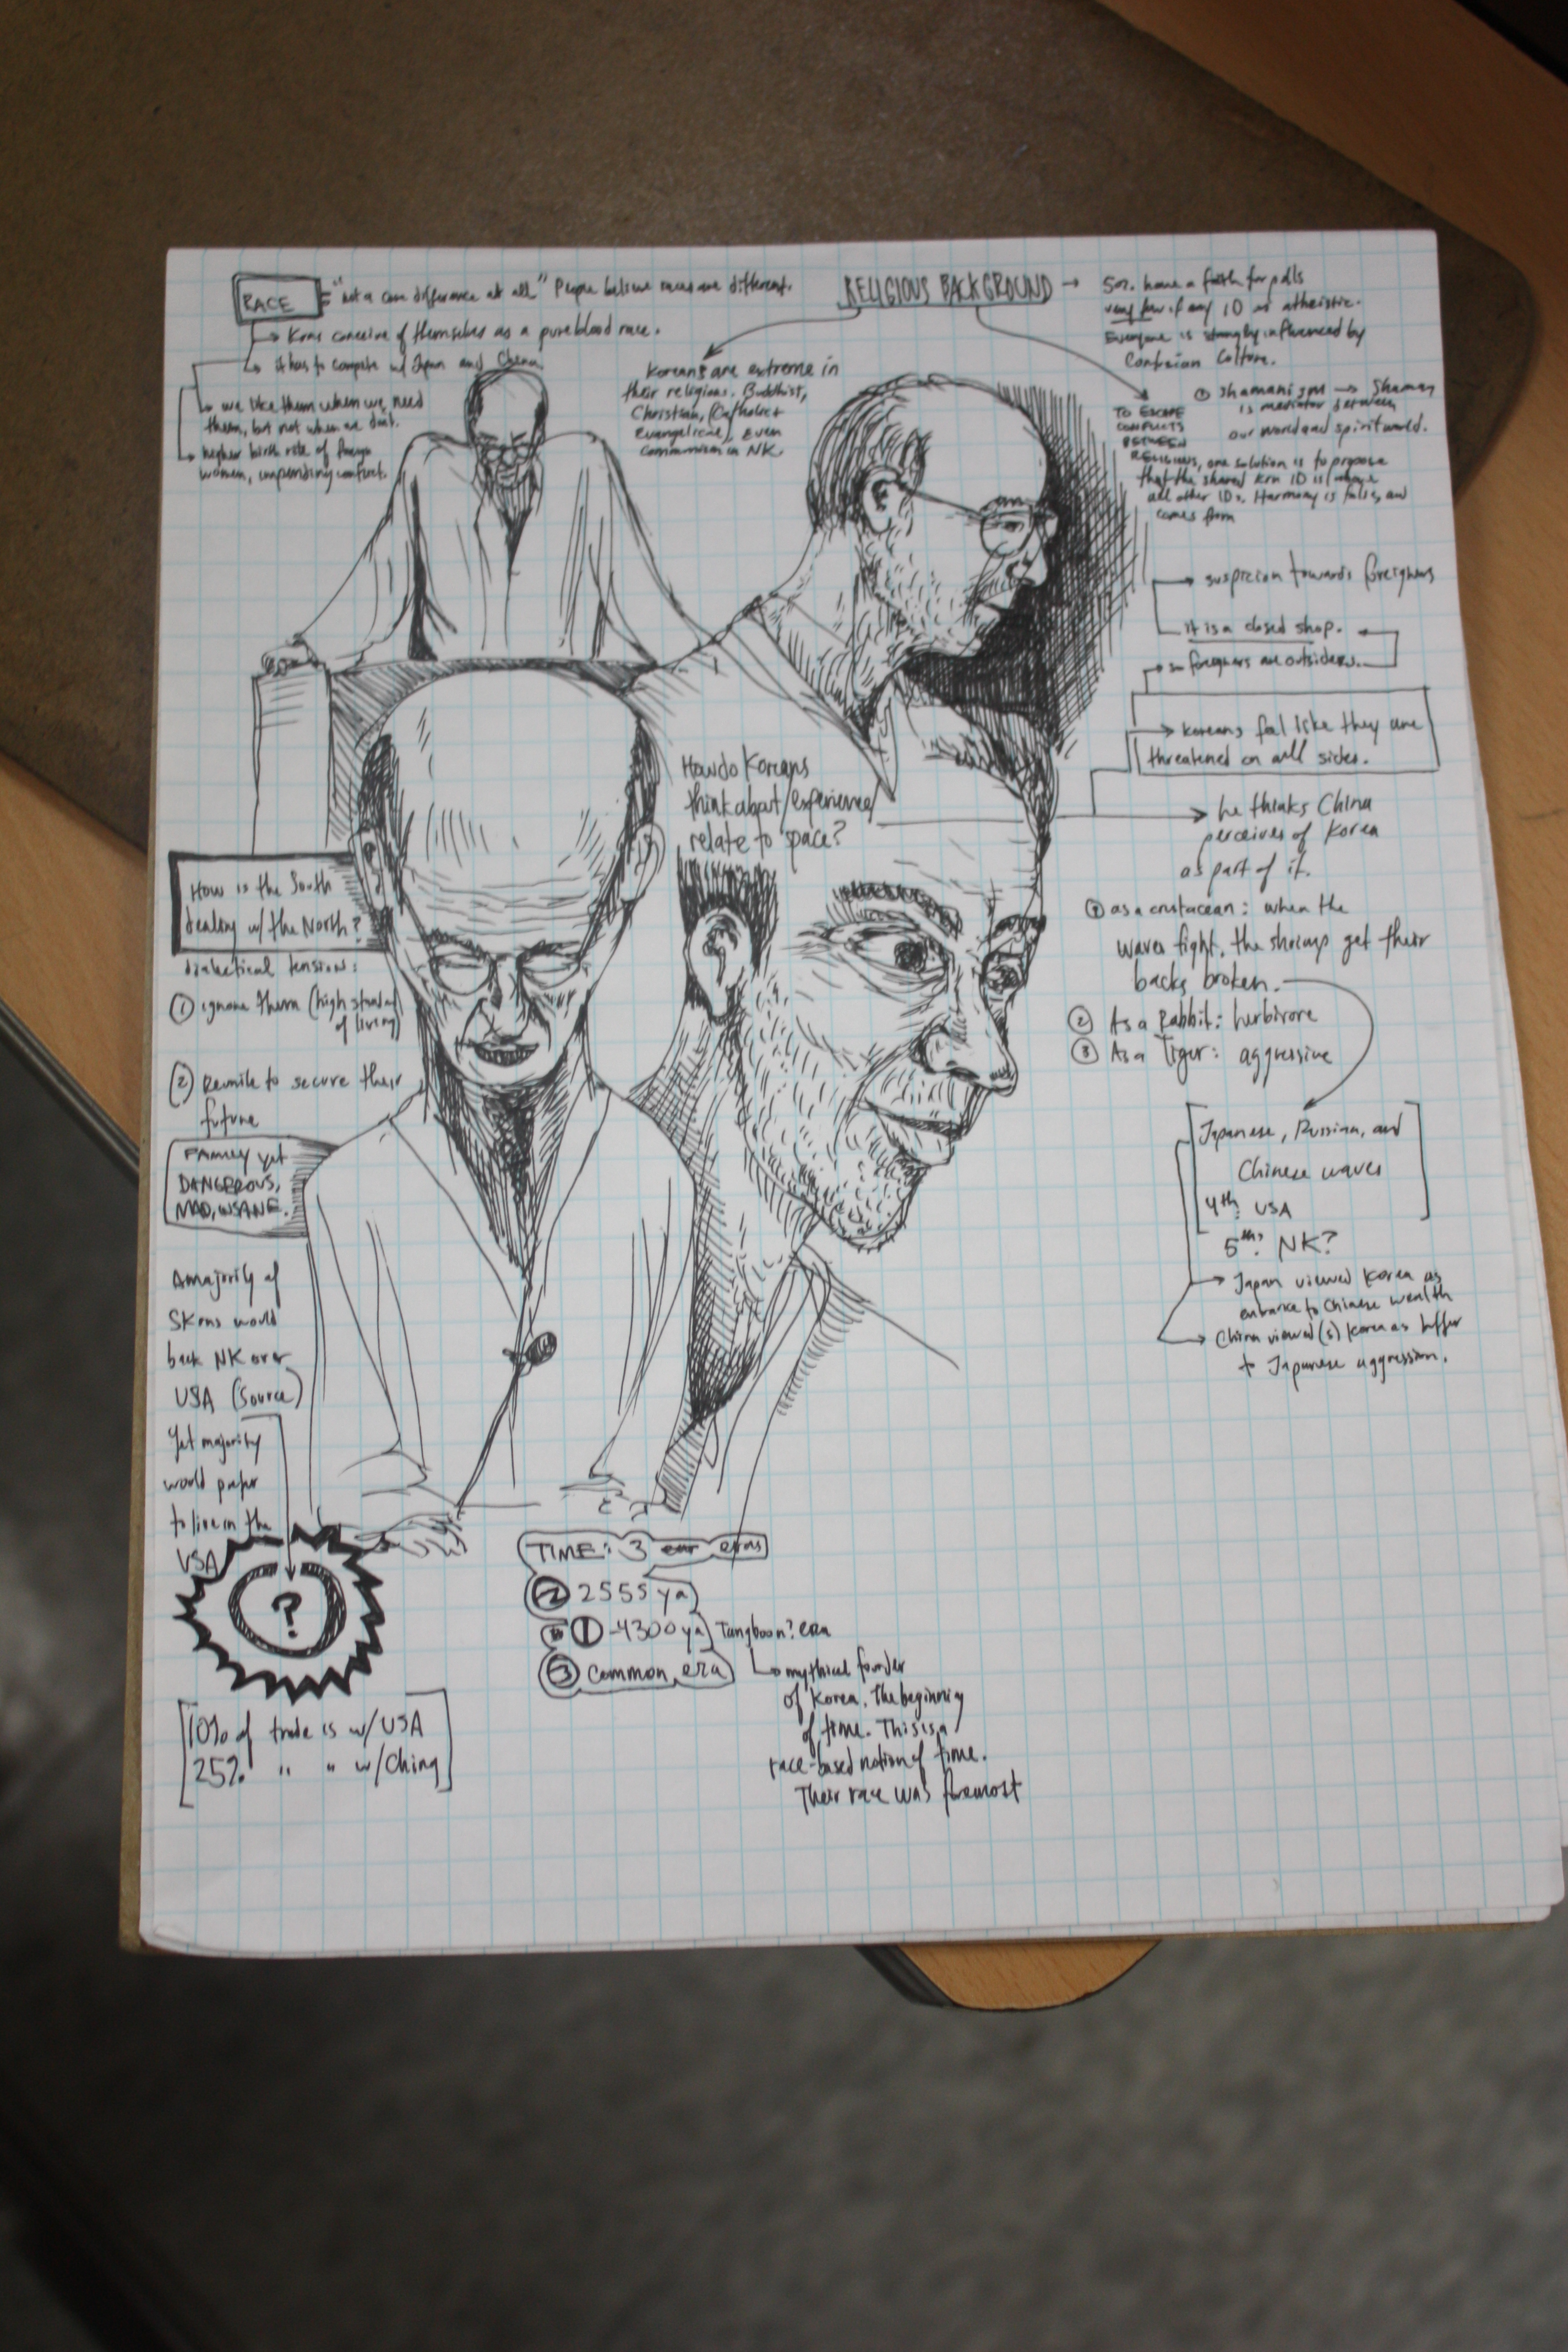 RACE
"not a core difference at all" People believe races are different.
Krns conceive of themselves as a pureblood race.
it has to compete w/ Japan and China
we like them when we need
them, but not when we don't.
higher birth rate of foreign
women, impending conflict.
RELIGIOUS BACKGROUND
50% have a faith for polls
very few if any ID as atheistic.
Everyone is strongly influenced by
Confucian Culture.
Koreans are extreme in
their religions. Buddhist,
Christian, (Catholic +
evangelical), even
Communism in NK.
① Shamanism → Shaman
is mediator between
our world and spirit world.
TO ESCAPE
CONFLICTS
BETWEEN
RELIGIONS, one solution is to propose
that the shared krn ID is above
all other IDs. Harmony is false, and
comes from
suspicion towards foreigners
it is a closed shop.
foreigners are outsiders.
Koreans feel like they are
threatened on all sides.
How do Koreans
think about/experience/
relate to space?
he thinks China
perceives of Korea
as part of it.
① as a crustacean: when the
waves fight, the shrimps get their
backs broken.
② As a Rabbit: herbivore
③ As a Tiger: aggressive
Japanese, Russian, and
Chinese waves
4th: USA
5th? NK?
Japan viewed Korea as
entrance to Chinese wealth
China viewed(s) Korea as buffer
to Japanese aggression.
How is the South
dealing w/ the North?
dialectical tension:
① ignore them (high standard
of living)
② Reunite to secure their
future
FAMILY yet
DANGEROUS,
MAD, INSANE.
A majority of
SKrns would
back NK over
USA (Source)
Yet majority
would prefer
to live in the
USA
?
10% of trade is w/ USA
25% " " w/ China
TIME: 3 eras
② 2555 ya
① -4300 ya Tangboon? era
③ Common era
mythical founder
of Korea. The beginning
of time. This is a
race-based notion of time.
Their race was foremost